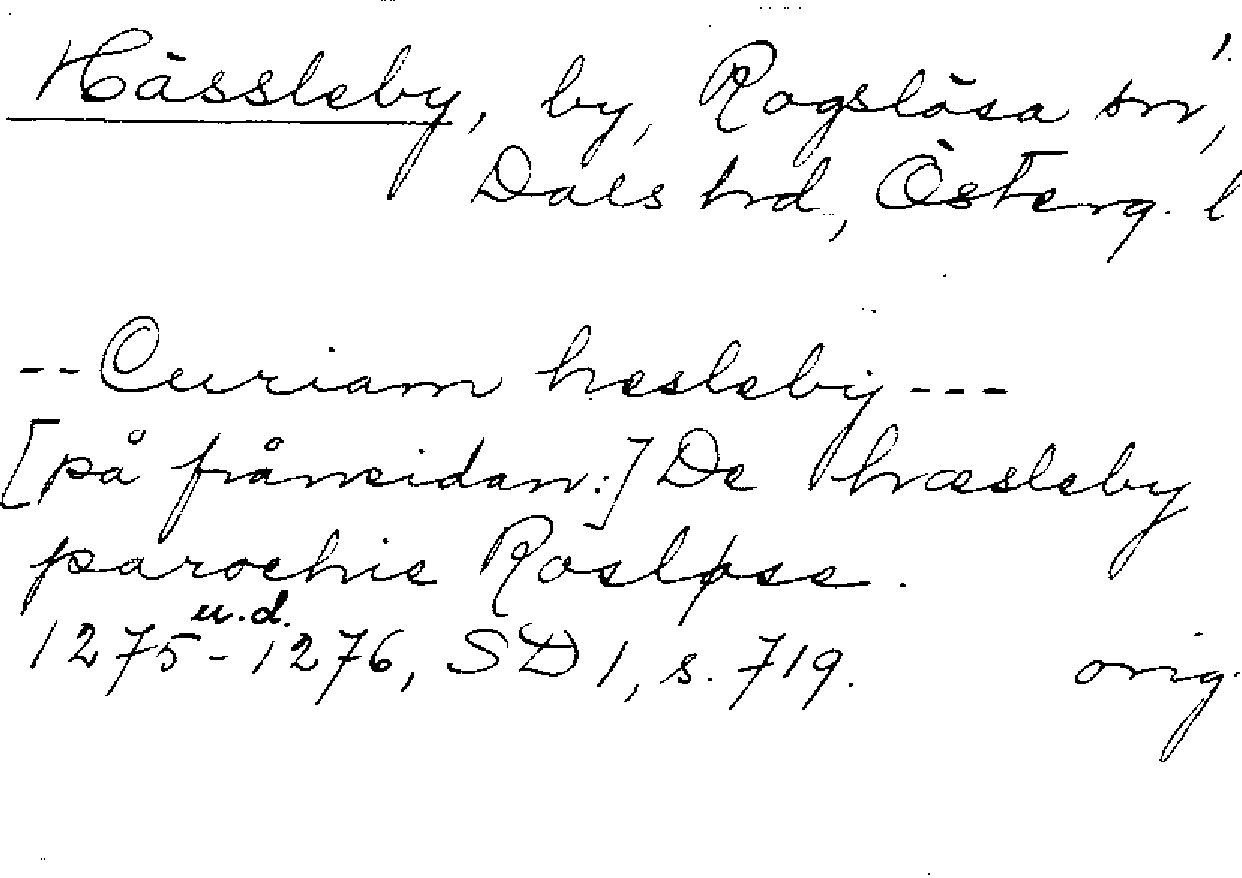 1.
Hässleby, by, Rogslösa sn,
Dals hd, Österg. l
-- Curiam hesleby ---
[på frånsidan:] De hæsleby
parochie Rosløse.
u.d.
1275-1276, SD 1, s. 719. orig.